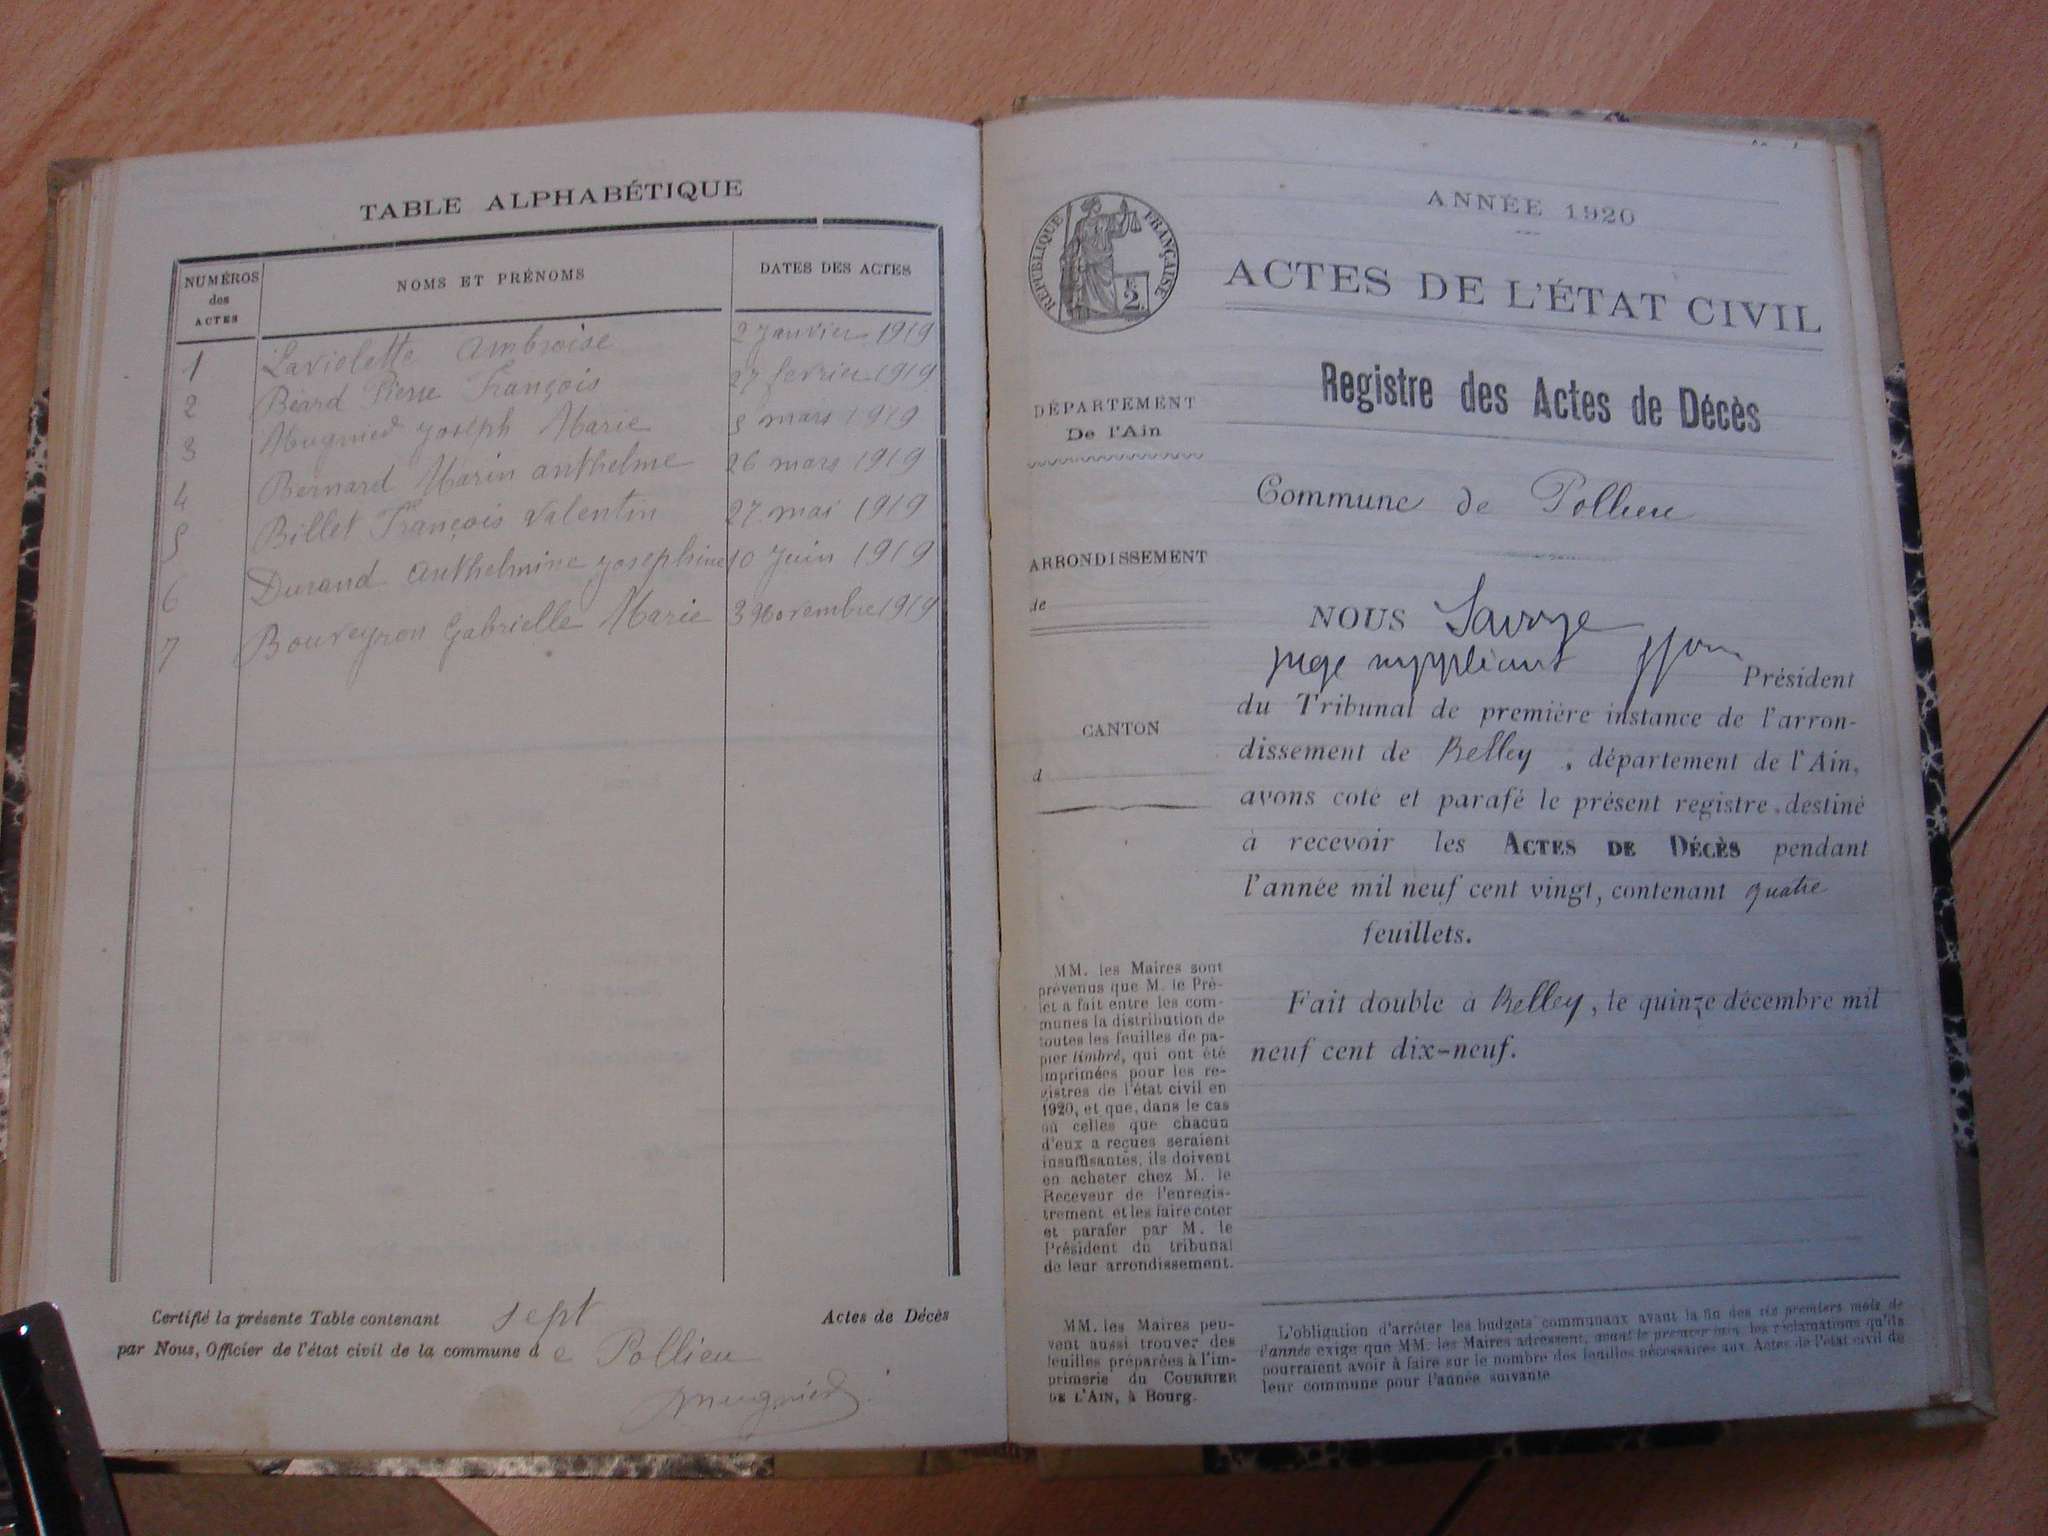 TABLE ALPHABÉTIQUE
NUMÉROS des ACTES
NOMS ET PRÉNOMS
DATES DES ACTES
1 Laviolette Ambroise 2 Janvier 1919
2 Béard Pierre François 27 fevrier 1919
3 Mugnier Joseph Marie 5 mars 1919
4 Bernard Marin anthelme 26 mars 1919
5 Billet François Valentin 27 mai 1919
6 Durand anthelmine Josephine 10 Juin 1919
7 Bouveyron Gabrielle Marie 3 Novembre 1919
Certifié la présente Table contenant sept Actes de Décès
par Nous, Officier de l'état civil de la commune de Pollieu
Mugnier
RÉPUBLIQUE FRANÇAISE
2 F.
DÉPARTEMENT
De l'Ain
ARRONDISSEMENT
de
CANTON
d
MM. les Maires sont
prévenus que M. le Pré-
fet a fait entre les com-
munes la distribution de
toutes les feuilles de pa-
pier timbré, qui ont été
imprimées pour les re-
gistres de l'état civil en
1920, et que, dans le cas
où celles que chacun
d'eux a reçues seraient
insuffisantes, ils doivent
en acheter chez M. le
Receveur de l'enregis-
trement et les faire coter
et parafer par M. le
Président du tribunal
de leur arrondissement.
MM. les Maires peu-
vent aussi trouver des
feuilles préparées à l'im-
primerie du COURRIER
DE L'AIN, à Bourg.
ANNÉE 1920
ACTES DE L'ÉTAT CIVIL
Registre des Actes de Décès
Commune de Pollieu
NOUS Savoye
juge suppléant Président
du Tribunal de première instance de l'arron-
dissement de Belley, département de l'Ain,
avons coté et parafé le présent registre destiné
à recevoir les ACTES DE DÉCÈS pendant
l'année mil neuf cent vingt, contenant quatre
feuillets.
Fait double à Belley, le quinze décembre mil
neuf cent dix-neuf.
L'obligation d'arrêter les budgets communaux avant la fin des six premiers mois de
l'année exige que MM. les Maires adressent, avant le premier mai, les réclamations qu'ils
pourraient avoir à faire sur le nombre des feuilles nécessaires aux Actes de l'état civil de
leur commune pour l'année suivante